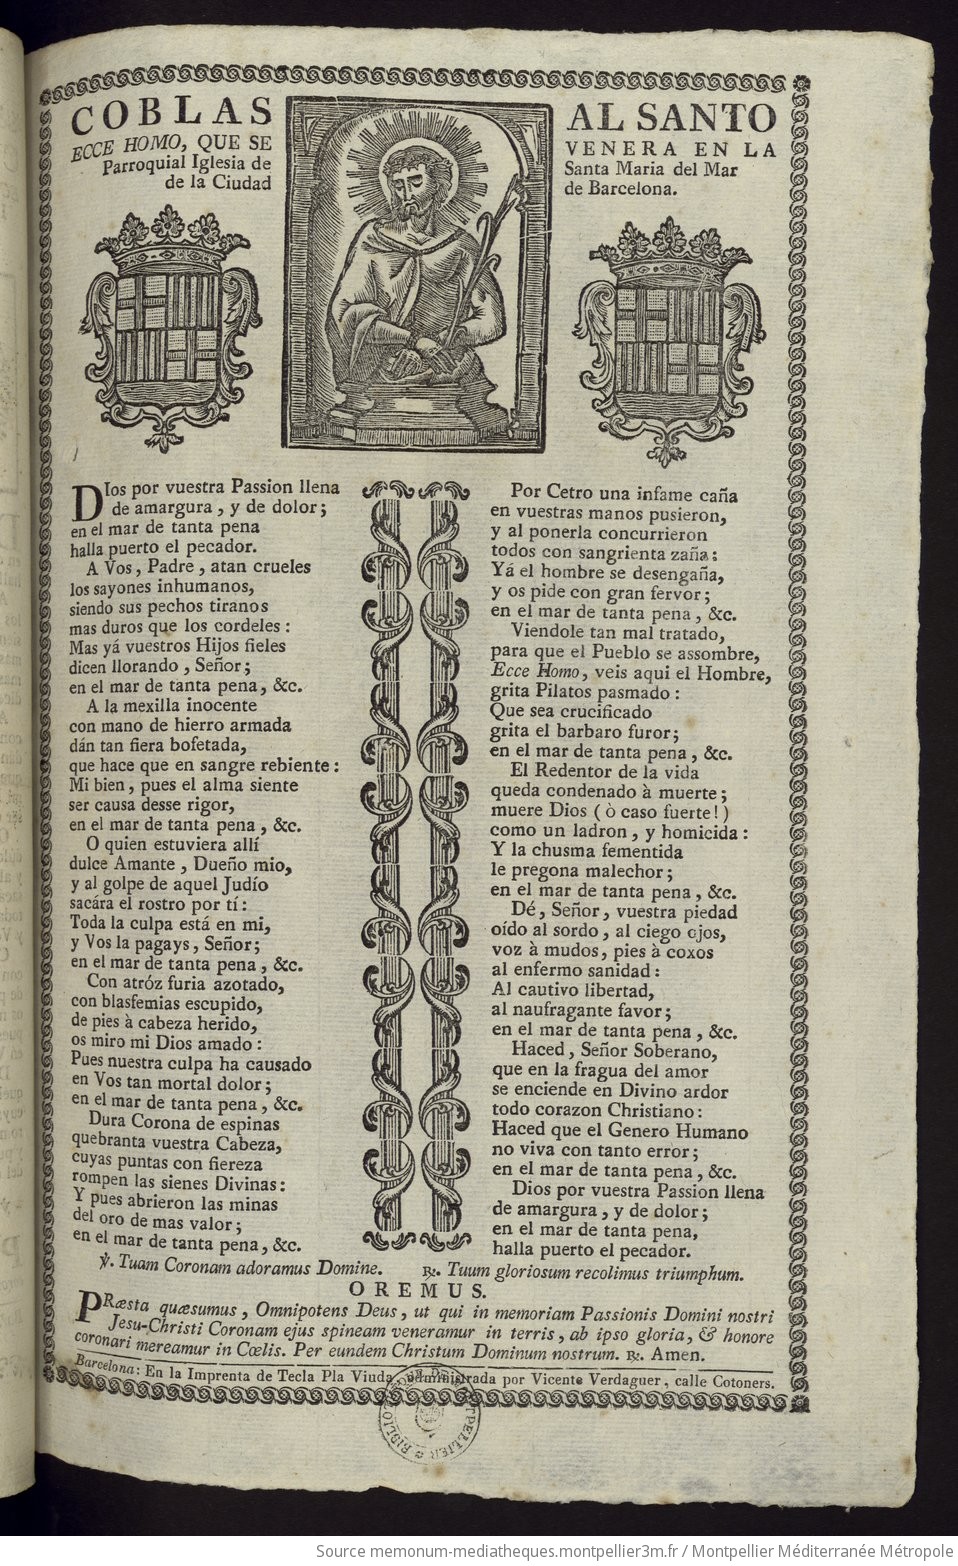 COBLAS AL SANTO
ECCE HOMO, QUE SE VENERA EN LA
Parroquial Iglesia de Santa Maria del Mar
de la Ciudad de Barcelona.
DIos por vuestra Passion llena
de amargura, y de dolor;
en el mar de tanta pena
halla puerto el pecador.
A Vos, Padre, atan crueles
los sayones inhumanos,
siendo sus pechos tiranos
mas duros que los cordeles:
Mas yá vuestros Hijos fieles
dicen llorando, Señor;
en el mar de tanta pena, &c.
A la mexilla inocente
con mano de hierro armada
dán tan fiera bofetada,
que hace que en sangre rebiente:
Mi bien, pues el alma siente
ser causa desse rigor,
en el mar de tanta pena, &c.
O quien estuviera allí
dulce Amante, Dueño mio,
y al golpe de aquel Judío
sacára el rostro por tí:
Toda la culpa está en mi,
y Vos la pagays, Señor;
en el mar de tanta pena, &c.
Con atróz furia azotado,
con blasfemias escupido,
de pies à cabeza herido,
os miro mi Dios amado:
Pues nuestra culpa ha causado
en Vos tan mortal dolor;
en el mar de tanta pena, &c.
Dura Corona de espinas
quebranta vuestra Cabeza,
cuyas puntas con fiereza
rompen las sienes Divinas:
Y pues abrieron las minas
del oro de mas valor;
en el mar de tanta pena, &c.
Por Cetro una infame caña
en vuestras manos pusieron,
y al ponerla concurrieron
todos con sangrienta zaña:
Yá el hombre se desengaña,
y os pide con gran fervor;
en el mar de tanta pena, &c.
Viendole tan mal tratado,
para que el Pueblo se assombre,
Ecce Homo, veis aqui el Hombre,
grita Pilatos pasmado:
Que sea crucificado
grita el barbaro furor;
en el mar de tanta pena, &c.
El Redentor de la vida
queda condenado à muerte;
muere Dios (ò caso fuerte!)
como un ladron, y homicida:
Y la chusma fementida
le pregona malechor;
en el mar de tanta pena, &c.
Dé, Señor, vuestra piedad
oído al sordo, al ciego ojos,
voz à mudos, pies à coxos
al enfermo sanidad:
Al cautivo libertad,
al naufragante favor;
en el mar de tanta pena, &c.
Haced, Señor Soberano,
que en la fragua del amor
se enciende en Divino ardor
todo corazon Christiano:
Haced que el Genero Humano
no viva con tanto error;
en el mar de tanta pena, &c.
Dios por vuestra Passion llena
de amargura, y de dolor;
en el mar de tanta pena,
halla puerto el pecador.
℣. Tuam Coronam adoramus Domine. ℟. Tuum gloriosum recolimus triumphum.
OREMUS.
PRæsta quæsumus, Omnipotens Deus, ut qui in memoriam Passionis Domini nostri
Jesu-Christi Coronam ejus spineam veneramur in terris, ab ipso gloria, & honore
coronari mereamur in Cœlis. Per eundem Christum Dominum nostrum. ℟. Amen.
Barcelona: En la Imprenta de Tecla Pla Viuda, administrada por Vicente Verdaguer, calle Cotoners.
Source memonum-mediatheques.montpellier3m.fr / Montpellier Méditerranée Métropole